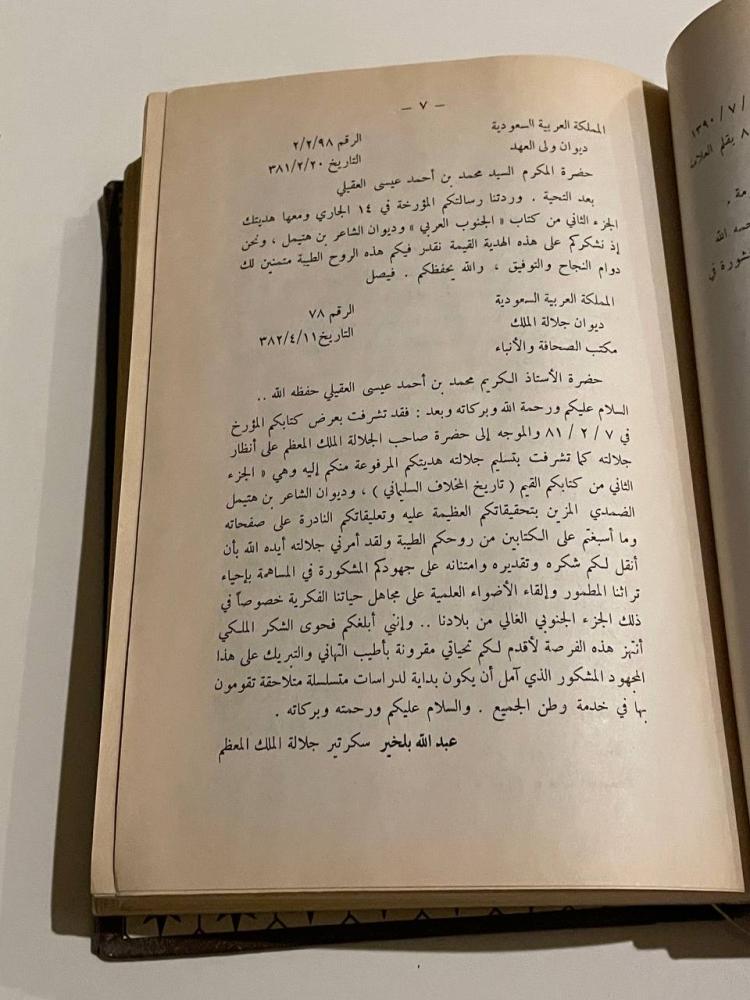 — ٧ —
المملكة العربية السعودية
ديوان ولى العهد
الرقم ٢/٢/٩٨
التاريخ ٣٨١/٢/٢٠
حضرة المكرم السيد محمد بن أحمد عيسى العقيلي
بعد التحية . وردتنا رسالتكم المؤرخة في ١٤ الجاري ومعها هديتك
الجزء الثاني من كتاب « الجنوب العربي » وديوان الشاعر بن هتيمل ، ونحن
إذ نشكركم على هذه الهدية القيمة نقدر فيكم هذه الروح الطيبة متمنين لك
دوام النجاح والتوفيق ، والله يحفظكم . فيصل
المملكة العربية السعودية
ديوان جلالة الملك
مكتب الصحافة والأنباء
الرقم ٧٨
التاريخ ٣٨٢/٤/١١
حضرة الأستاذ الكريم محمد بن أحمد عيسى العقيلي حفظه الله ..
السلام عليكم ورحمة الله وبركاته وبعد : فقد تشرفت بعرض كتابكم المؤرخ
في ٧ / ٢ / ٨١ والموجه إلى حضرة صاحب الجلالة الملك المعظم على أنظار
جلالته كما تشرفت بتسليم جلالته هديتكم المرفوعة منكم إليه وهي « الجزء
الثاني من كتابكم القيم ( تاريخ المخلاف السليماني ) ، وديوان الشاعر بن هتيمل
الضمدي المزين بتحقيقاتكم العظيمة عليه وتعليقاتكم النادرة على صفحاته
وما أسبغتم على الكتابين من روحكم الطيبة ولقد أمرني جلالته أيده الله بأن
أنقل لكم شكره وتقديره وامتنانه على جهودكم المشكورة في المساهمة بإحياء
تراثنا المطمور وإلقاء الأضواء العلمية على مجاهل حياتنا الفكرية خصوصاً في
ذلك الجزء الجنوبي الغالي من بلادنا .. وإنني أبلغكم فحوى الشكر الملكي
أنتهز هذه الفرصة لأقدم لكم تحياتي مقرونة بأطيب التهاني والتبريك على هذا
المجهود المشكور الذي آمل أن يكون بداية لدراسات متسلسلة متلاحقة تقومون
بها في خدمة وطن الجميع . والسلام عليكم ورحمته وبركاته .
عبد الله بلخير سكرتير جلالة الملك المعظم
/ ٧ / ١٣٩٠
بقلم العلامة
حمه الله
شورة في